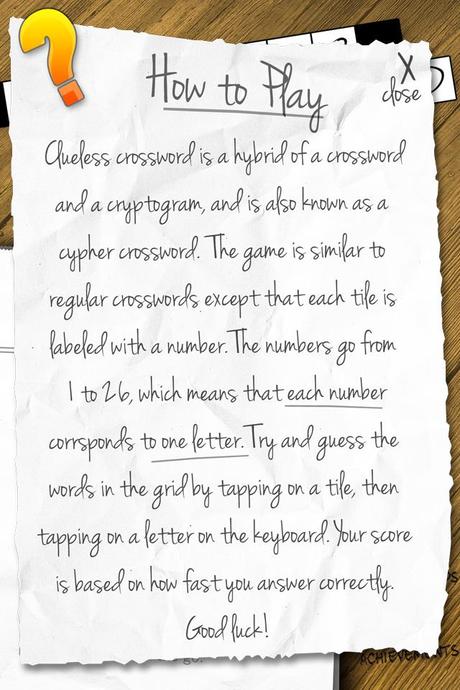 How to Play
X
close
Clueless crossword is a hybrid of a crossword
and a cryptogram, and is also known as a
cypher crossword. The game is similar to
regular crosswords except that each tile is
labeled with a number. The numbers go from
1 to 26, which means that each number
corrsponds to one letter. Try and guess the
words in the grid by tapping on a tile, then
tapping on a letter on the keyboard. Your score
is based on how fast you answer correctly.
Good luck!
ACHIEVEMENTS